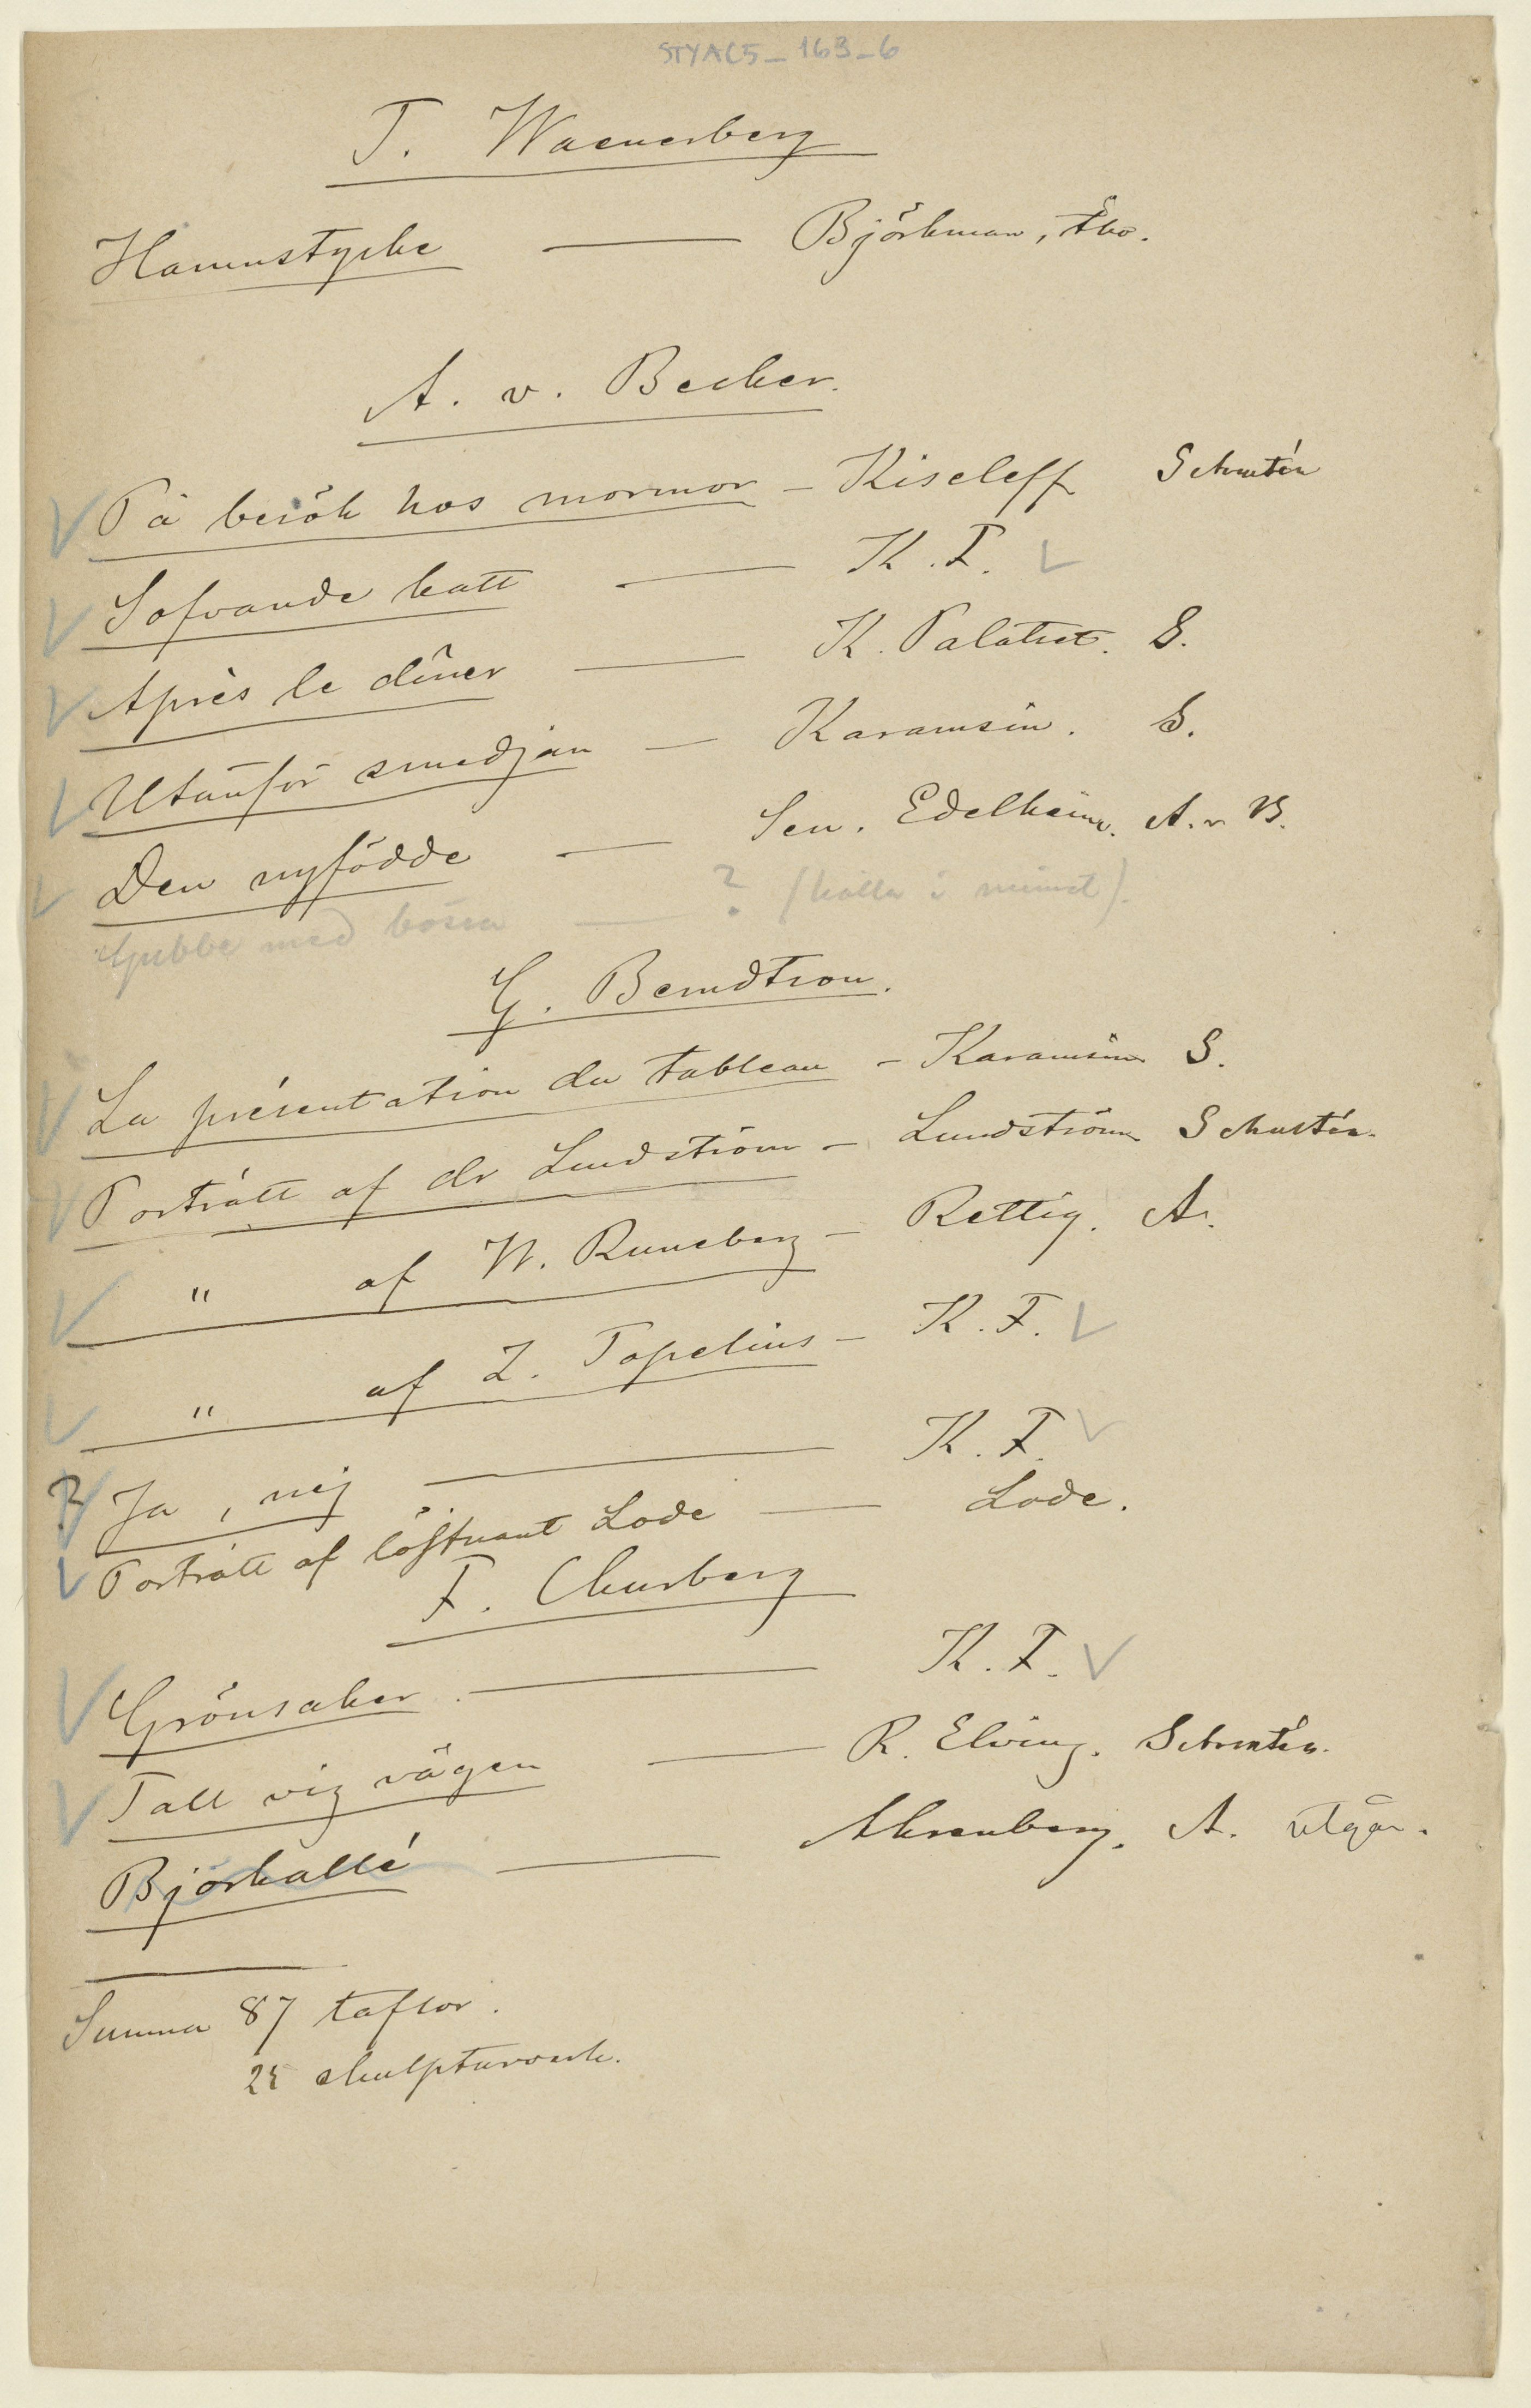 STYAC5_163_6
T. Waenerberg
Hamnstycke — Björkman, Åbo.
A. v. Becker.
√ På besök hos mormor - Kiseleff Schustén
√ Sofvande katt — K. F. √
√ Après le dîner — K. Palatset. S.
√ Utanför smedjan — Karamsin. S.
√ Den nyfödde — Sen. Edelheim. A. v. B.
Gubbe med bössa — ? (hålla i minnet).
G. Berndtson.
√ La présentation du tableau - Karamsin S.
√ Porträtt af dr Lundström - Lundström Schustén.
√ " af W. Runeberg - Rettig. A.
√ " af Z. Topelius - K. F. √
? √ Ja, nej — K. F. √
√ Porträtt af löjtnant Lode — Lode.
F. Churberg
√ Grönsaker. — K. F. √
√ Tall vig vägen — R. Elving. Schustén.
Björkallé — Ahrenberg. A. utgår.
Summa 87 taflor.
25 skulpturverk.